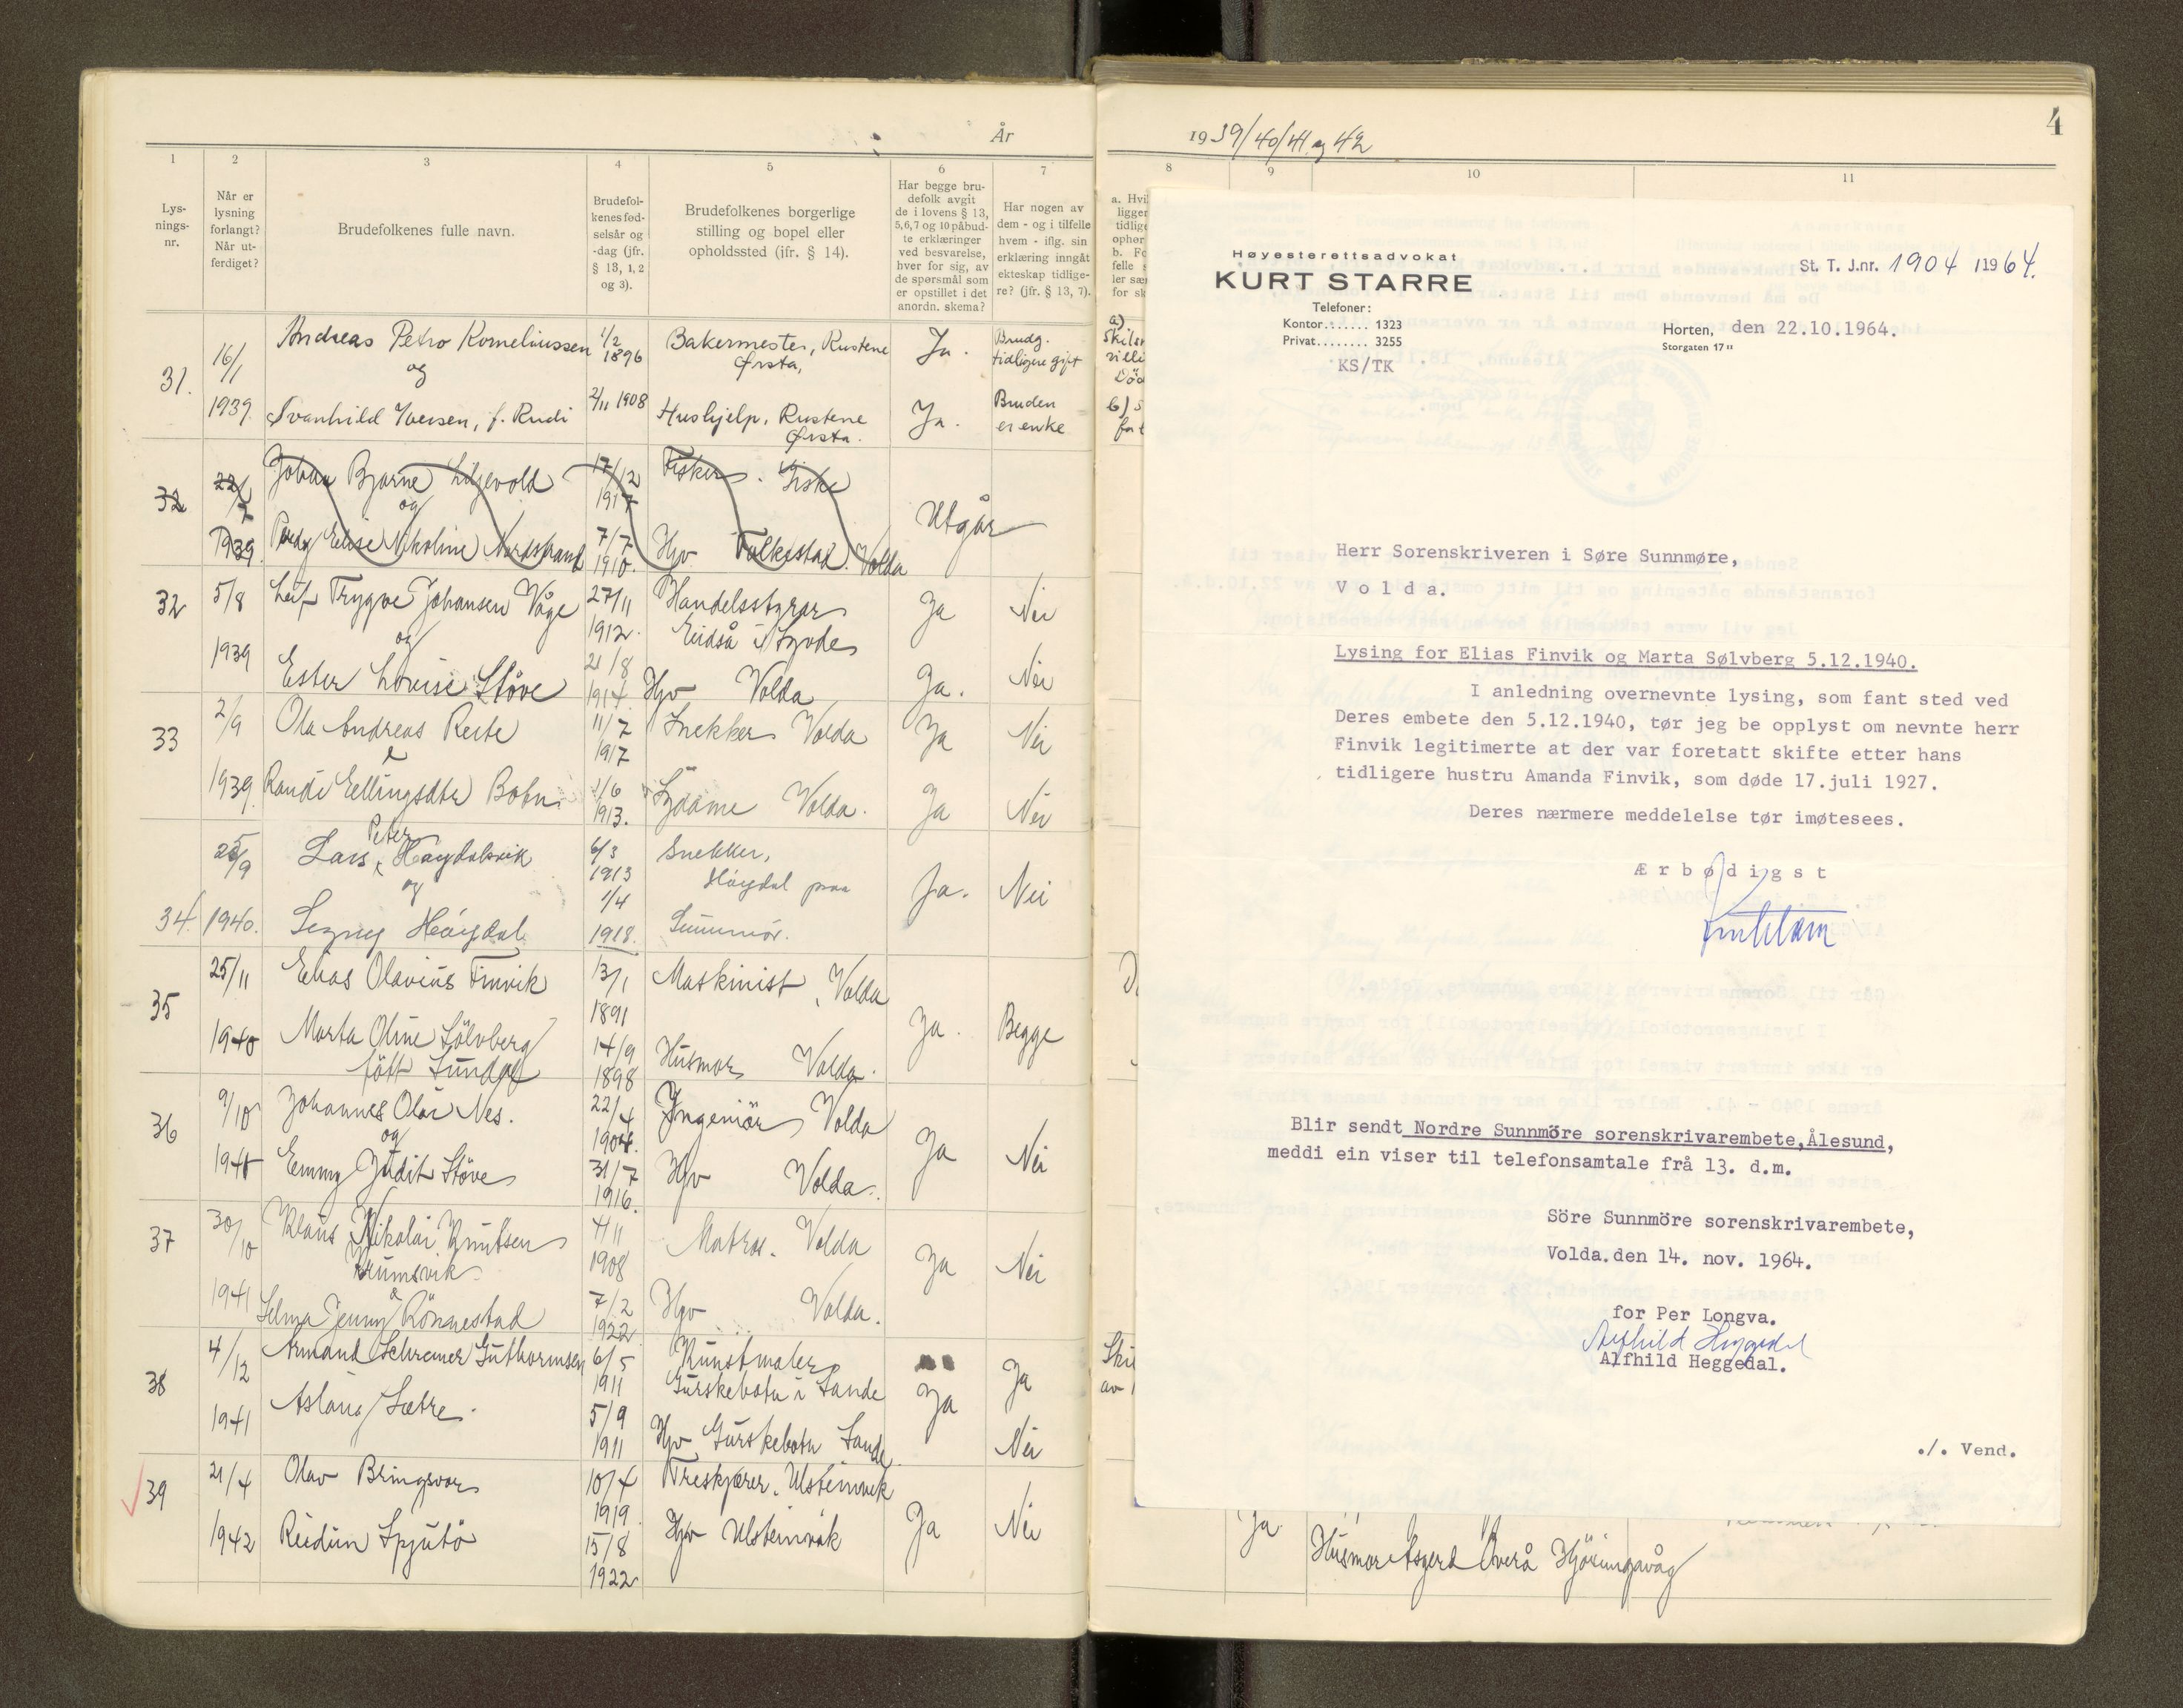 År
1 2 3 4 5 6 7
Lys-
nings-
nr.
Når er
lysning
forlangt?
Når ut-
ferdiget?
Brudefolkenes fulle navn.
Brudefol-
kenes fød-
selsår og
-dag (jfr.
§ 13, 1, 2
og 3).
Brudefolkenes borgerlige
stilling og bopel eller
opholdssted (ifr. § 14).
Har begge bru-
defolk avgit
de i lovens § 13,
5,6,7 og 10 påbud-
te erklæringer
ved besvarelse,
hver for sig, av
de spørsmål som
er opstillet i det
anordn. skema?
Har nogen av
dem - og i tilfelle
hvem - iflg. sin
erklæring inngåt
ekteskap tidlige-
re? (jfr. § 13, 7).
31. 16/1 1939.
Andreas Petro Korneliussen 1/2 1896 Bakermester, Rustene Ørsta, Ja. Brudg. tidligere gift
og
Svanhild Iversen, f. Rudi 2/11 1908 Hushjelp, Rustene Ørsta. Ja. Bruden er enke
32 22/7 1939.
Johan Bjarne Liljevold 17/12 1917 Fisker. Giske
og Utgår
Elise Nikoline Nordstrand 7/7 1910. Hjv Folkestad. Volda
32 5/8 1939
Leif Trygve Johansen Våge 27/11 1912. Handelsstyrar Eidså i Syvde Ja Nei
og
Ester Lovise Støve 21/8 1914. Hjv Volda Ja. Nei
33 2/9 1939.
Ola Andreas Reite 11/7 1917 Snekker Volda Ja Nei
Randi Ellingsdtr Botn 1913. Sydame Volda. Ja Nei
34. 25/9 1940.
Lars Peter Høydalsvik 6/3 1913 Snekker,
og Høydal Ja. Nei
Høydal 1/4 1918. Sunnmør.
35 25/11 1940
Elias Olavius Finvik 13/1 1891 Maskinist, Volda
Ja. Begge
Marta Oline Sölvberg
født 14/9 1898 Husmor Volda.
36 9/10 1940
Johannes Olai Nes. 22/4 1904. Ingeniör Volda
og Ja Nei
Emmy Judit Støve 31/7 1916. Hjv Volda.
37 30/10 1941
Klaus Nikolai Knutsen
Krumsvik 4/11 1908 Matros. Volda Ja Nei
&
Selma Jenny Rönnestad 7/2 1922 Hjv Volda.
38 4/12 1941
Armand Schreiner Guthormsen 6/5 1911 Kunstmaler Gurskebotn i Sande Ja Ja
Aslaug Sætre. 5/9 1911 Hjv Gurskebotn Sande. Nei
39 21/4 1942
Olav Bringsvor 10/4 1919. Treskjærer. Ulsteinvik Ja Nei
Reidun Spjutö 15/8 1922 Hjv Ulsteinvik
1939/40/41 og 42
4
8 9 10 11
Høyesterettsadvokat
KURT STARRE
Telefoner:
Kontor....... 1323
Privat........ 3255
KS/TK
St. T. J.nr. 1904 /1964.
Horten, den 22.10.1964.
Storgaten 17 II
Herr Sorenskriveren i Søre Sunnmøre,
V o l d a.
Lysing for Elias Finvik og Marta Sølvberg 5.12.1940.
I anledning overnevnte lysing, som fant sted ved
Deres embete den 5.12.1940, tør jeg be opplyst om nevnte herr
Finvik legitimerte at der var foretatt skifte etter hans
tidligere hustru Amanda Finvik, som døde 17.juli 1927.
Deres nærmere meddelelse tør imøtesees.
Æ r b ø d i g s t
Blir sendt Nordre Sunnmöre sorenskrivarembete,Ålesund,
meddi ein viser til telefonsamtale frå 13. d.m.
Söre Sunnmöre sorenskrivarembete,
Volda.den 14. nov. 1964.
for Per Longva.
Alfhild Heggedal
Alfhild Heggedal.
./. Vend.
Ja. Husmor Asgerd Overå Hjörungavåg